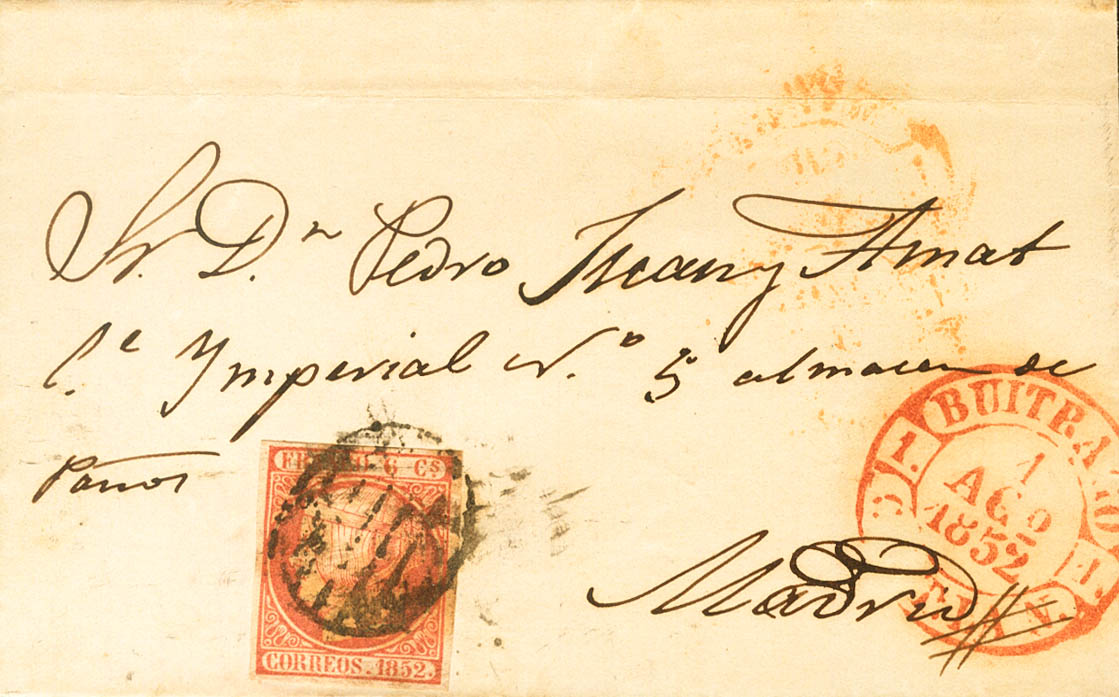 Sr. D.n Pedro Juany Amat
C.e Ymperial N.o 5 almacen de
Paños
Madrid
6 Cs
CORREOS. 1852.
BUITRAGO
1
AGO
1852